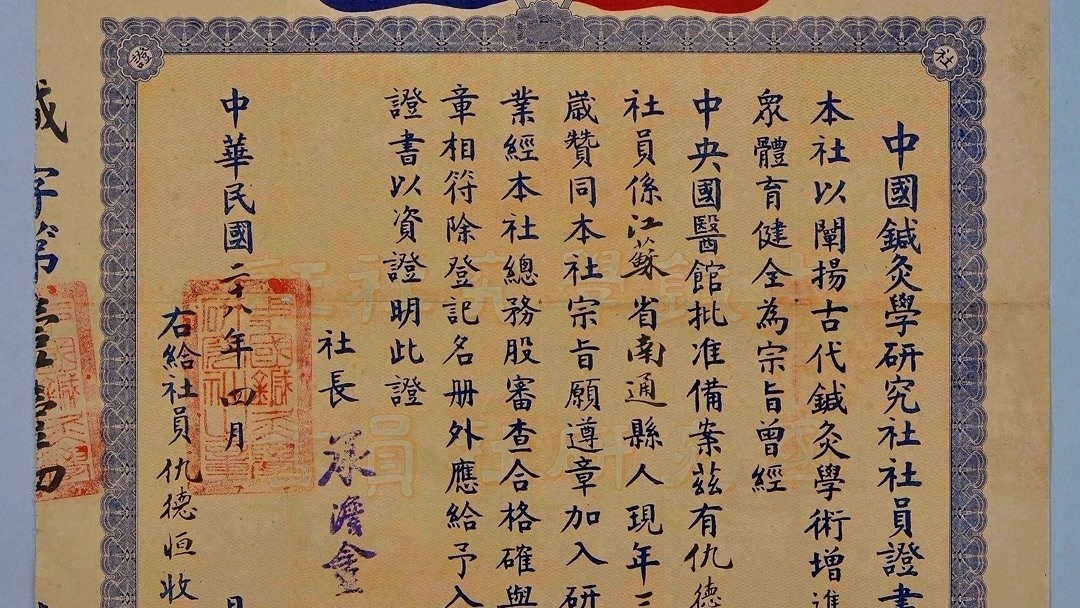 社
證
中國鍼灸學研究社社員證書
本社以闡揚古代鍼灸學術增進
眾體育健全為宗旨曾經
中央國醫館批准備案茲有仇德
社員係江蘇省南通縣人現年三
歲贊同本社宗旨願遵章加入研
業經本社總務股審查合格確與
章相符除登記名册外應給予入
證書以資證明此證
社長 承澹盦
中華民國二十八年四月 日
右給社員仇德恒收
字第